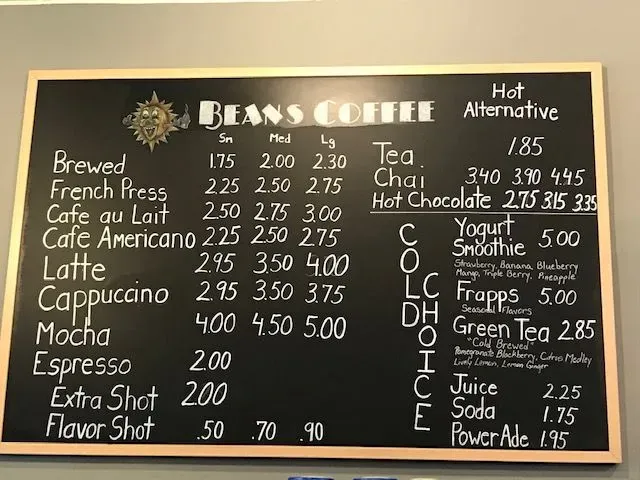 BEANS COFFEE
Sm Med Lg
Brewed 1.75 2.00 2.30
French Press 2.25 2.50 2.75
Cafe au Lait 2.50 2.75 3.00
Cafe Americano 2.25 2.50 2.75
Latte 2.95 3.50 4.00
Cappuccino 2.95 3.50 3.75
Mocha 4.00 4.50 5.00
Espresso 2.00
Extra Shot 2.00
Flavor Shot .50 .70 .90
Hot
Alternative
Tea 1.85
Chai 3.40 3.90 4.45
Hot Chocolate 2.75 3.15 3.35
COLD
CHOICE
Yogurt
Smoothie 5.00
Strawberry, Banana, Blueberry
Mango, Triple Berry, Pineapple
Frapps 5.00
Seasonal Flavors
Green Tea 2.85
"Cold Brewed"
Pomegranate Blackberry, Citrus Medley
Lively Lemon, Lemon Ginger
Juice 2.25
Soda 1.75
PowerAde 1.95